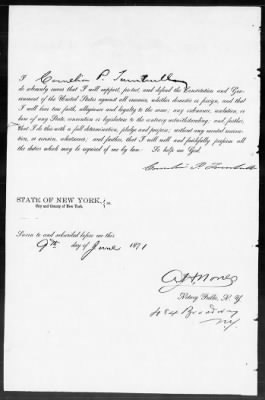 I Cornelia P. Turnbull
do solemnly swear that I will support, protect, and defend the Constitution and Gov-
ernment of the United States against all enemies, whether domestic or foreign, and that
I will bear true faith, allegiance and loyalty to the same; any ordinance, resolution, or
law of any State, convention or legislature to the contrary notwithstanding, and further,
that I do this with a full determination, pledge and purpose, without any mental reserva-
tion, or evasion, whatsoever; and further, that I will well and faithfully perform all
the duties which may be required of me by law. So help me God.
Cornelia P. Turnbull
STATE OF NEW YORK, } ss.
City and County of New York.
Sworn to and subscribed before me this
9th day of June 1871
Notary Public, N. Y.
Broadway
NY.